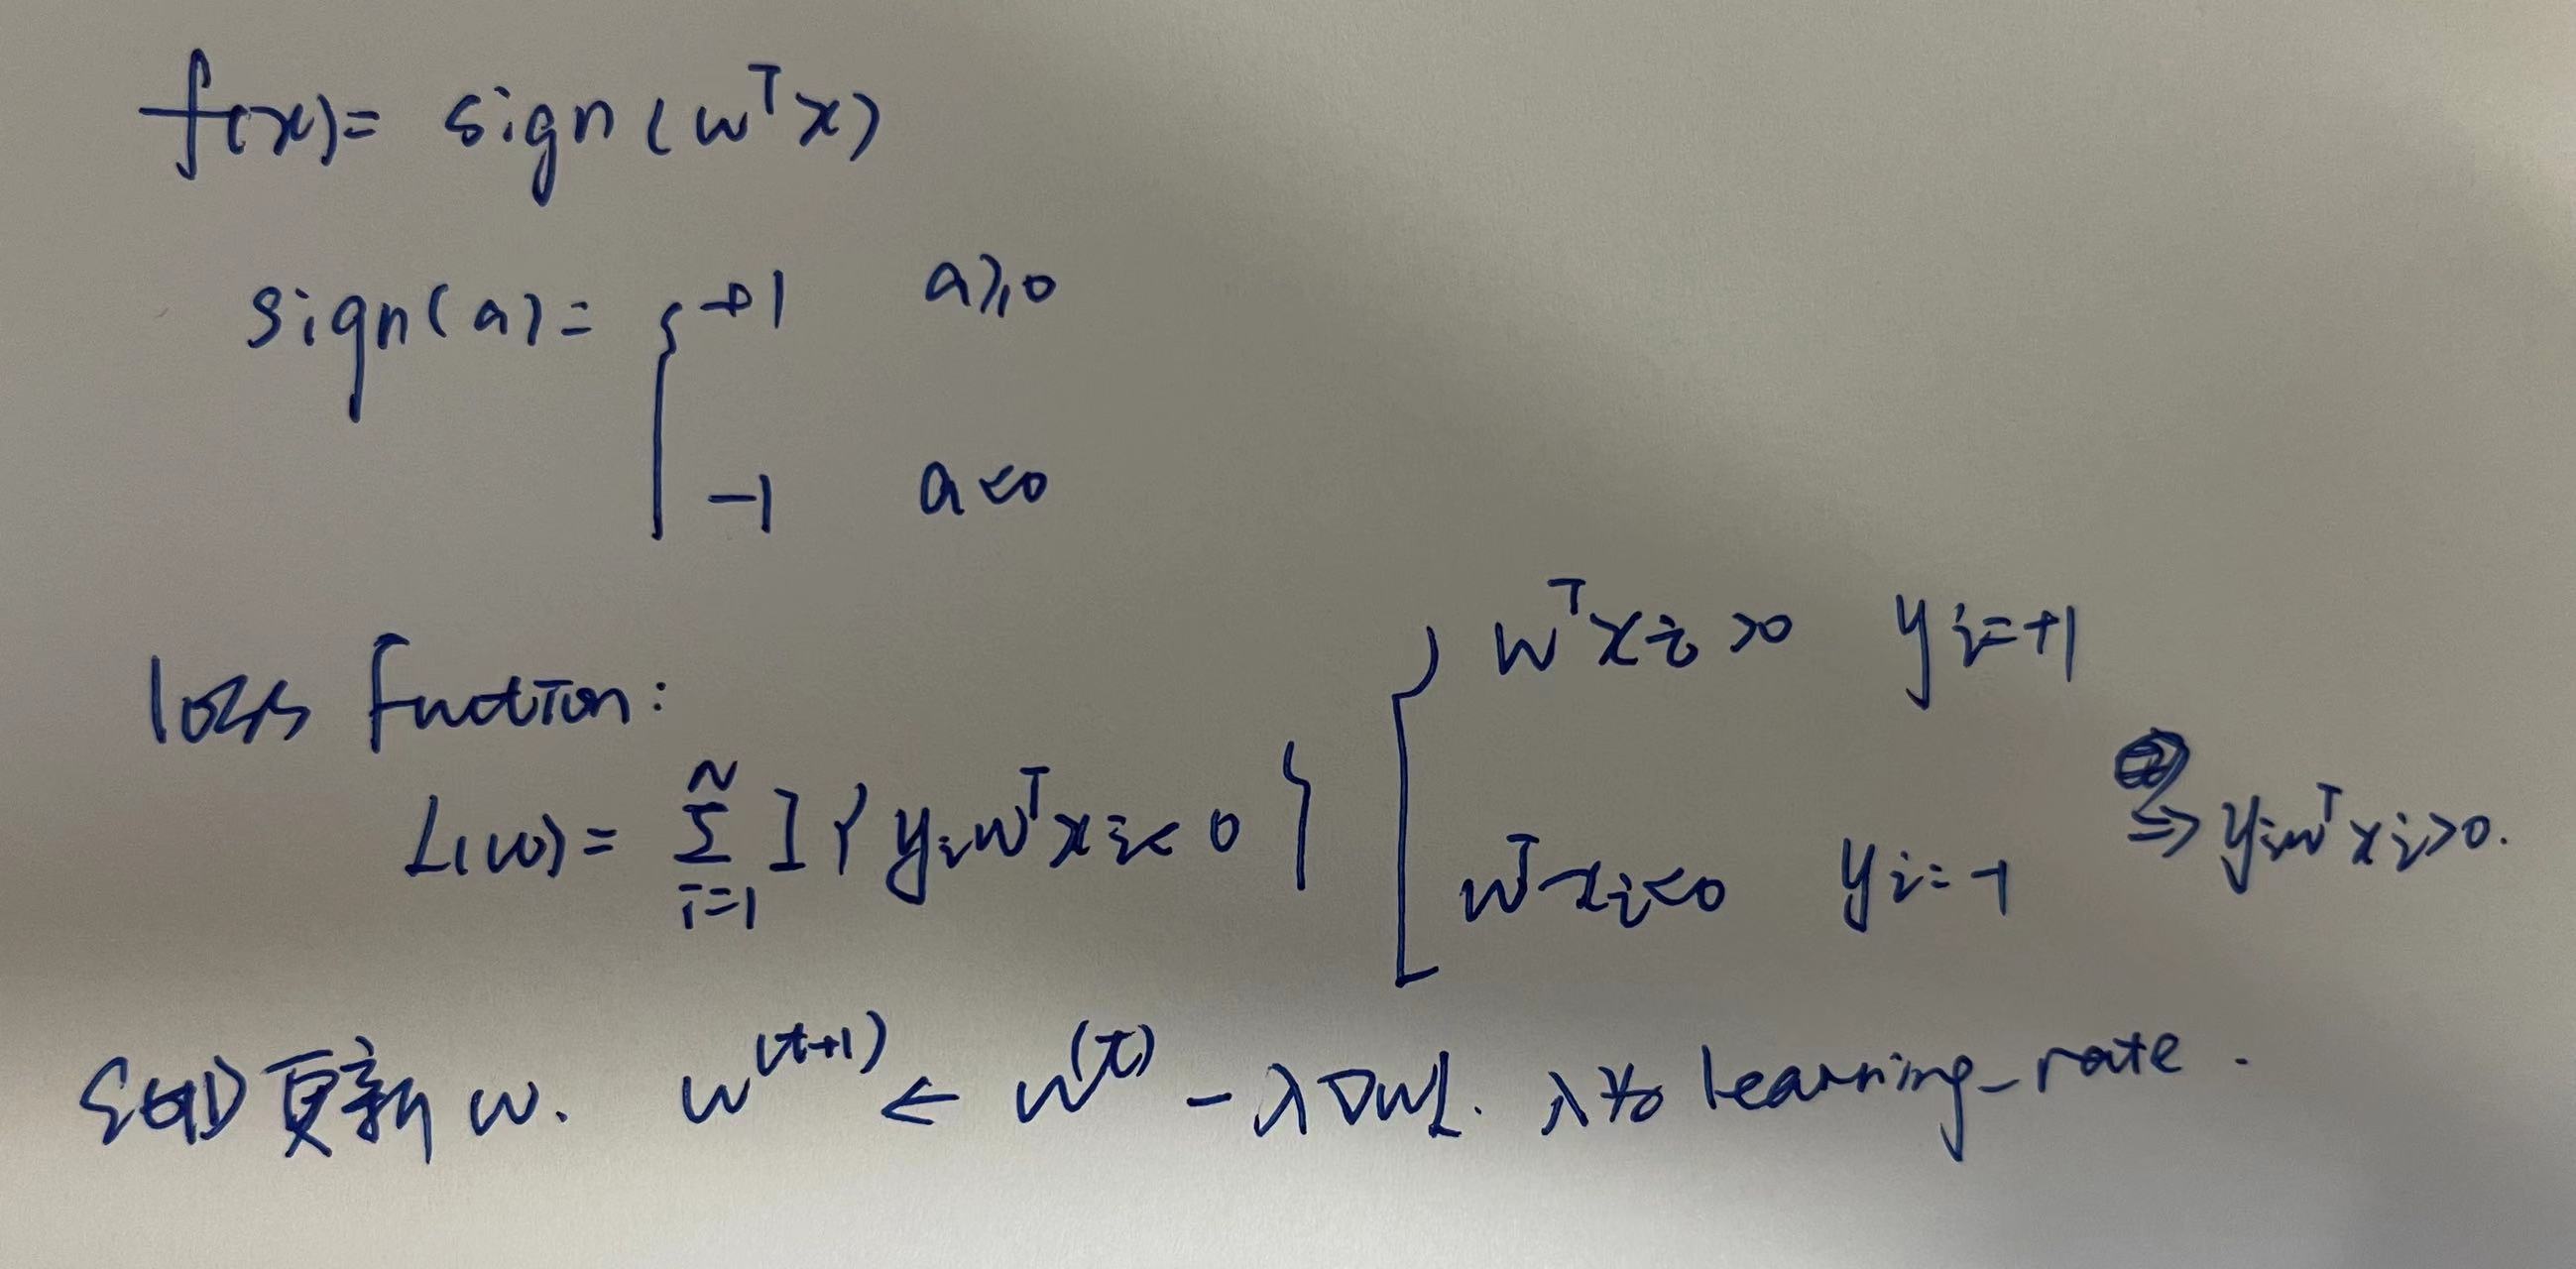 f(x)= sign(wᵀx)
sign(a)= { +1 a≥0
-1 a<0
loss function:
L(w)= Σ_{i=1}^{N} I{ y_i wᵀx_i < 0 }
{ wᵀx_i >0 y_i=+1
wᵀx_i<0 y_i=-1
⇒ y_i wᵀx_i>0.
SGD更新 w. w^(t+1) ← w^(t) - λ∇wL. λ为 learning_rate.